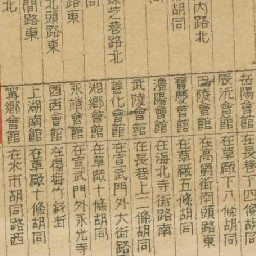 内路北
胡同
巷路北
路東
北頭路東
間路東
岳陽會館
在長巷下四條胡同
辰沅會館
在草廠下八條胡同
會館
在高爵街南頭路東
寶慶會館
在草廠五條胡同
澧陽會館
在海北寺街路南
武陵會館
在長巷上二條胡同
善化會館
在宣武門外大街路
湘鄉會館
在草廠十條胡同
永靖會館
在宣武門外永光寺
酉西會館
在楊梅竹斜街
上湖南館
在草廠十條胡同
鄉會館
在米市胡同路西